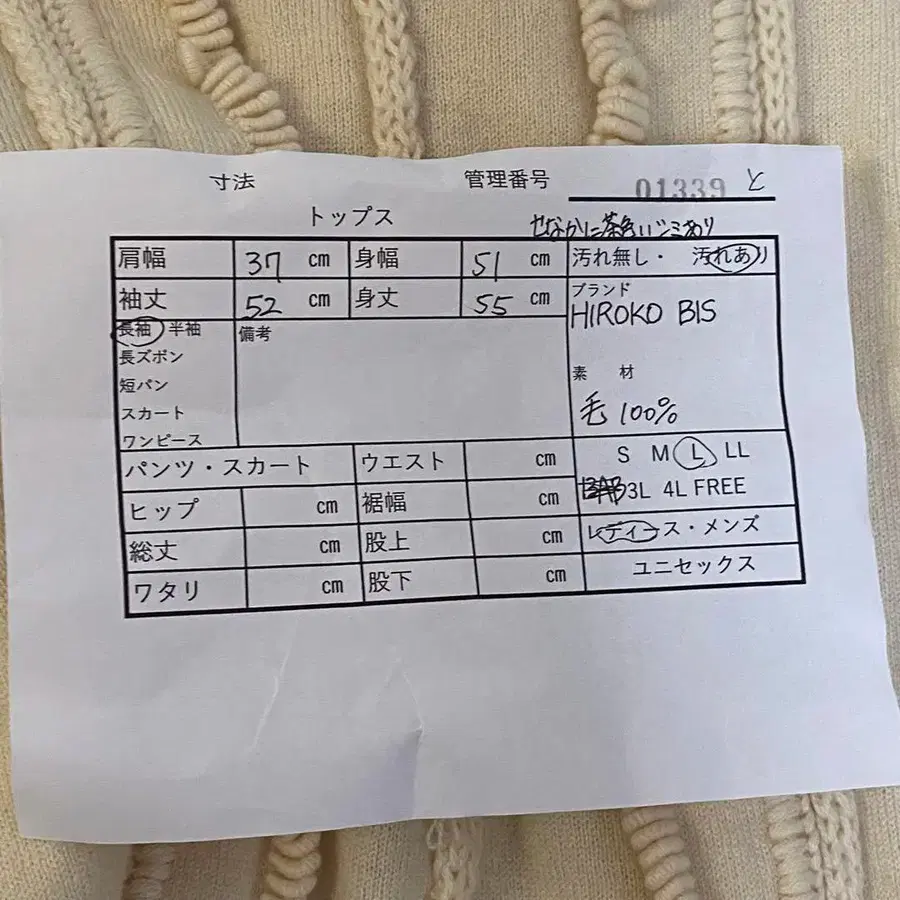 寸法 管理番号 01339 と
トップス せなかに茶色いシミあり
肩幅 37 cm 身幅 51 cm 汚れ無し・ 汚れあり
袖丈 52 cm 身丈 55 cm ブランド
HIROKO BIS
長袖 半袖 備考
長ズボン
短パン 素 材
スカート 毛 100%
ワンピース
パンツ・スカート ウエスト cm S M L LL
ヒップ cm 裾幅 cm 3L 4L FREE
総丈 cm 股上 cm レディース・メンズ
ワタリ cm 股下 cm ユニセックス